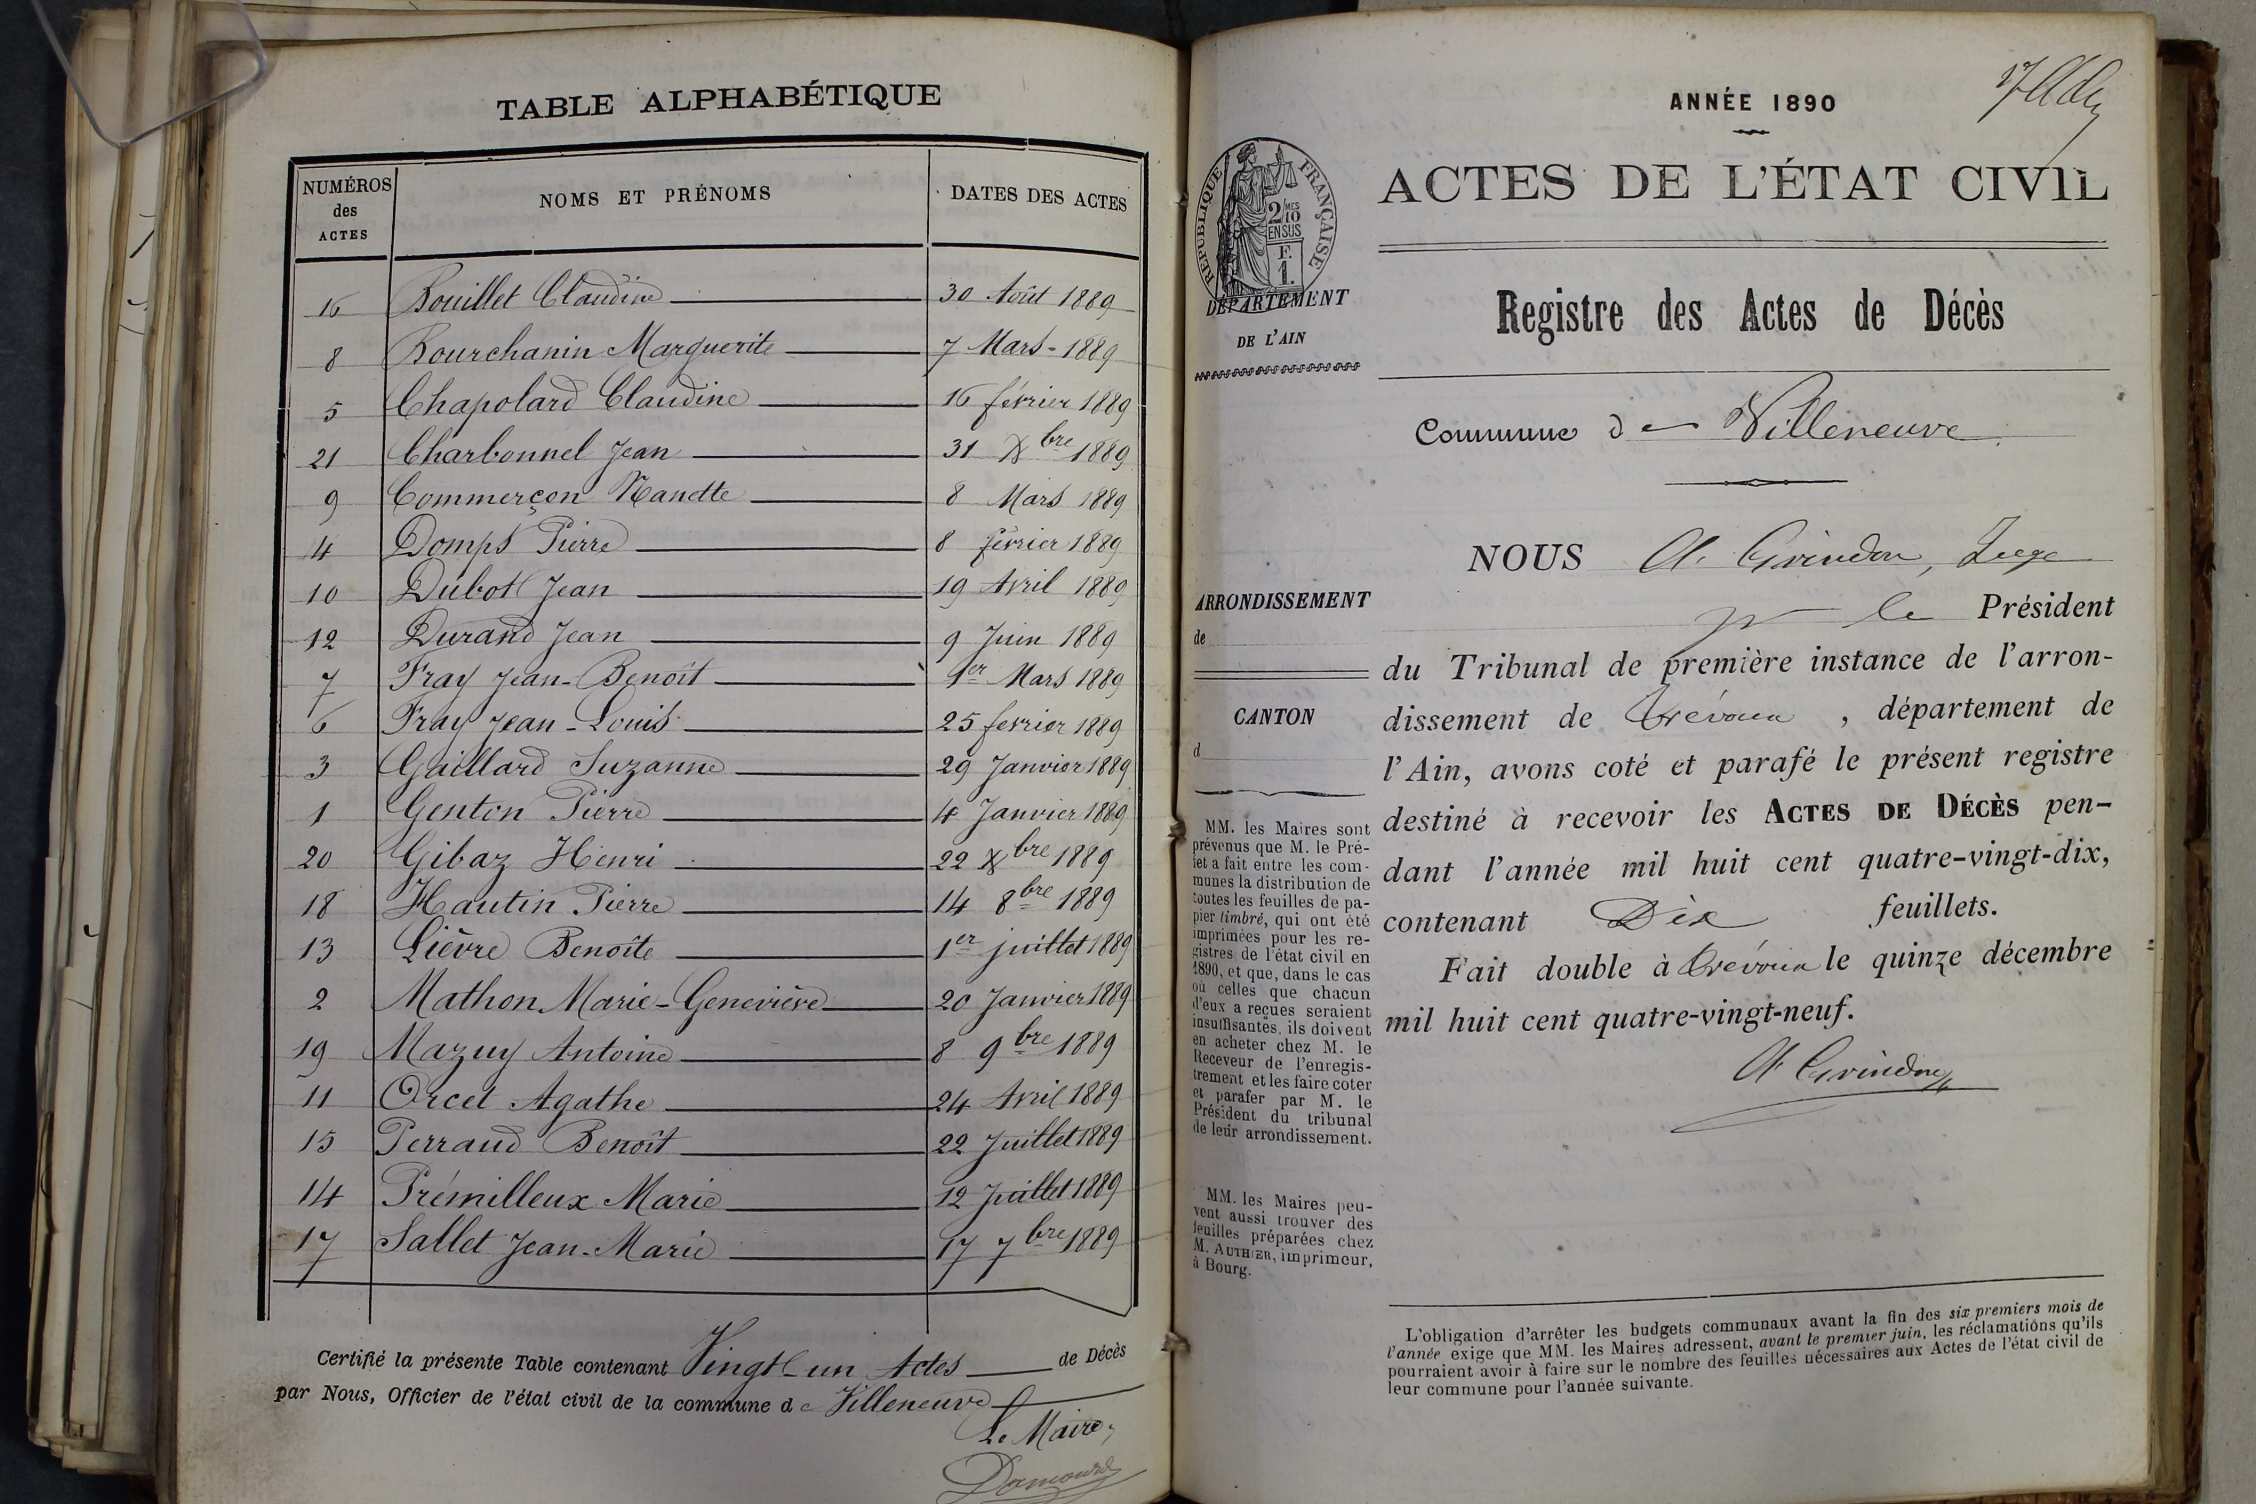 TABLE ALPHABÉTIQUE
NUMÉROS des ACTES NOMS ET PRÉNOMS DATES DES ACTES
16 Bouillet Claudine 30 Août 1889
8 Bourchanin Marguerite 7 Mars - 1889
5 Chapolard Claudine 16 février 1889
21 Charbonnel Jean 31 Xbre 1889
9 Commerçon Nanette 8 Mars 1889
4 Domps Pierre 8 février 1889
10 Dubot Jean 19 Avril 1889
12 Durand Jean 9 Juin 1889
7 Fray Jean-Benoît 1er Mars 1889
6 Fray Jean-Louis 25 fevrier 1889
3 Gaillard Suzanne 29 Janvier 1889
1 Genton Pierre 4 Janvier 1889
20 Gibaz Henri 22 Xbre 1889
18 Hautin Pierre 14 8bre 1889
13 Lièvre Benoîte 1er juillet 1889
2 Mathon Marie-Geneviève 20 Janvier 1889
19 Mazuy Antoine 8 9bre 1889
11 Orcet Agathe 24 Avril 1889
15 Perraud Benoît 22 Juillet 1889
14 Prémilleux Marie 12 Juillet 1889
17 Sallet Jean-Marie 17 7bre 1889
Certifié la présente Table contenant Vingt-un Actes de Décès
par Nous, Officier de l'état civil de la commune de Villeneuve
Le Maire,
ANNÉE 1890
ACTES DE L'ÉTAT CIVIL
RÉPUBLIQUE FRANÇAISE
2/10MES
EN SUS
F.
1.
DÉPARTEMENT
DE L'AIN
Registre des Actes de Décès
Commune de Villeneuve
ARRONDISSEMENT
de
CANTON
d
MM. les Maires sont
prévenus que M. le Pré-
fet a fait entre les com-
munes la distribution de
toutes les feuilles de pa-
pier timbré, qui ont été
imprimées pour les re-
gistres de l'état civil en
1890, et que, dans le cas
où celles que chacun
d'eux a reçues seraient
insuffisantes, ils doivent
en acheter chez M. le
Receveur de l'enregis-
trement et les faire coter
et parafer par M. le
Président du tribunal
de leur arrondissement.
MM. les Maires peu-
vent aussi trouver des
feuilles préparées chez
M. AUTHIER, imprimeur,
à Bourg.
NOUS A. Grindon, Juge
le Président
du Tribunal de première instance de l'arron-
dissement de Trévoux, département de
l'Ain, avons coté et parafé le présent registre
destiné à recevoir les ACTES DE DÉCÈS pen-
dant l'année mil huit cent quatre-vingt-dix,
contenant Dix feuillets.
Fait double à Trévoux le quinze décembre
mil huit cent quatre-vingt-neuf.
A Grindon
L'obligation d'arrêter les budgets communaux avant la fin des six premiers mois de
l'année exige que MM. les Maires adressent, avant le premier juin, les réclamations qu'ils
pourraient avoir à faire sur le nombre des feuilles nécessaires aux Actes de l'état civil de
leur commune pour l'année suivante.